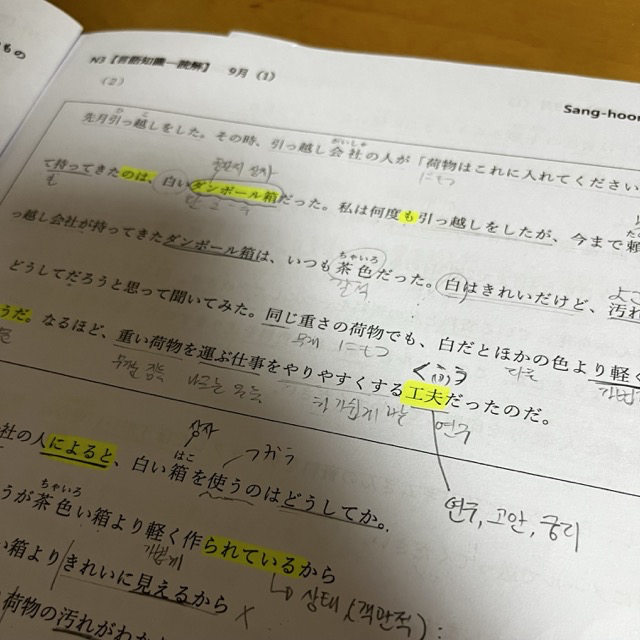 もの
N3【言語知識ー読解】 9月（1）
Sang-hoon
（2）
先月引っ越しをした。その時、引っ越し会社の人が「荷物はこれに入れてください
ひ こ がいしゃ
にもつ
て持ってきたのは、白いダンボール箱だった。私は何度も引っ越しをしたが、今まで頼
も
っ越し会社が持ってきたダンボール箱は、いつも茶色だった。白はきれいだけど、汚れ
ちゃいろ
갈색
どうしてだろうと思って聞いてみた。同じ重さの荷物でも、白だとほかの色より軽く
무게 にもつ
うだ。なるほど、重い荷物を運ぶ仕事をやりやすくする工夫だったのだ。
くふう
연구
연구, 고안, 궁리
社の人によると、白い箱を使うのはどうしてか。
상자
はこ
つかう
うが茶色い箱より軽く作られているから
ちゃいろ
가볍게
い箱よりきれいに見えるから
상태 (객관적) :
荷物の汚れがわ